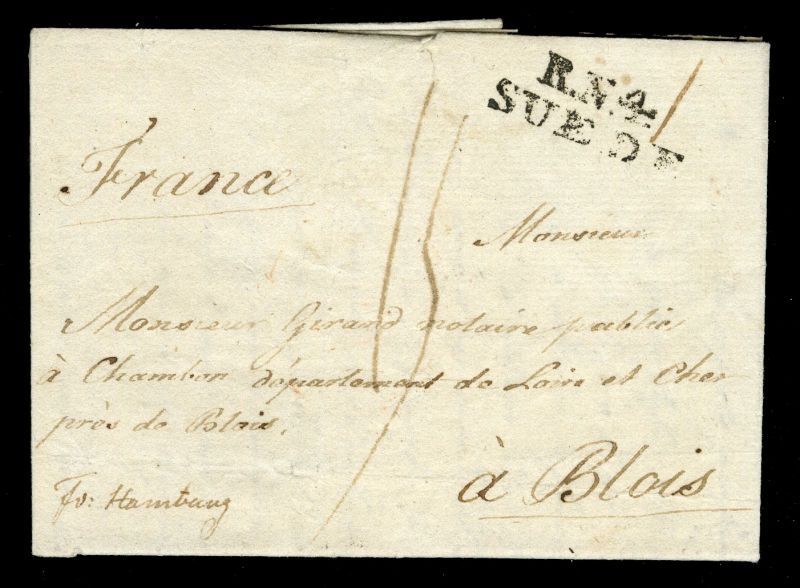 R.N.4.
SUEDE
France
Monsieur
Monsieur Girard notaire public
à Chambon département de Loire et Cher
près de Blois.
à Blois
fo: Hamburg